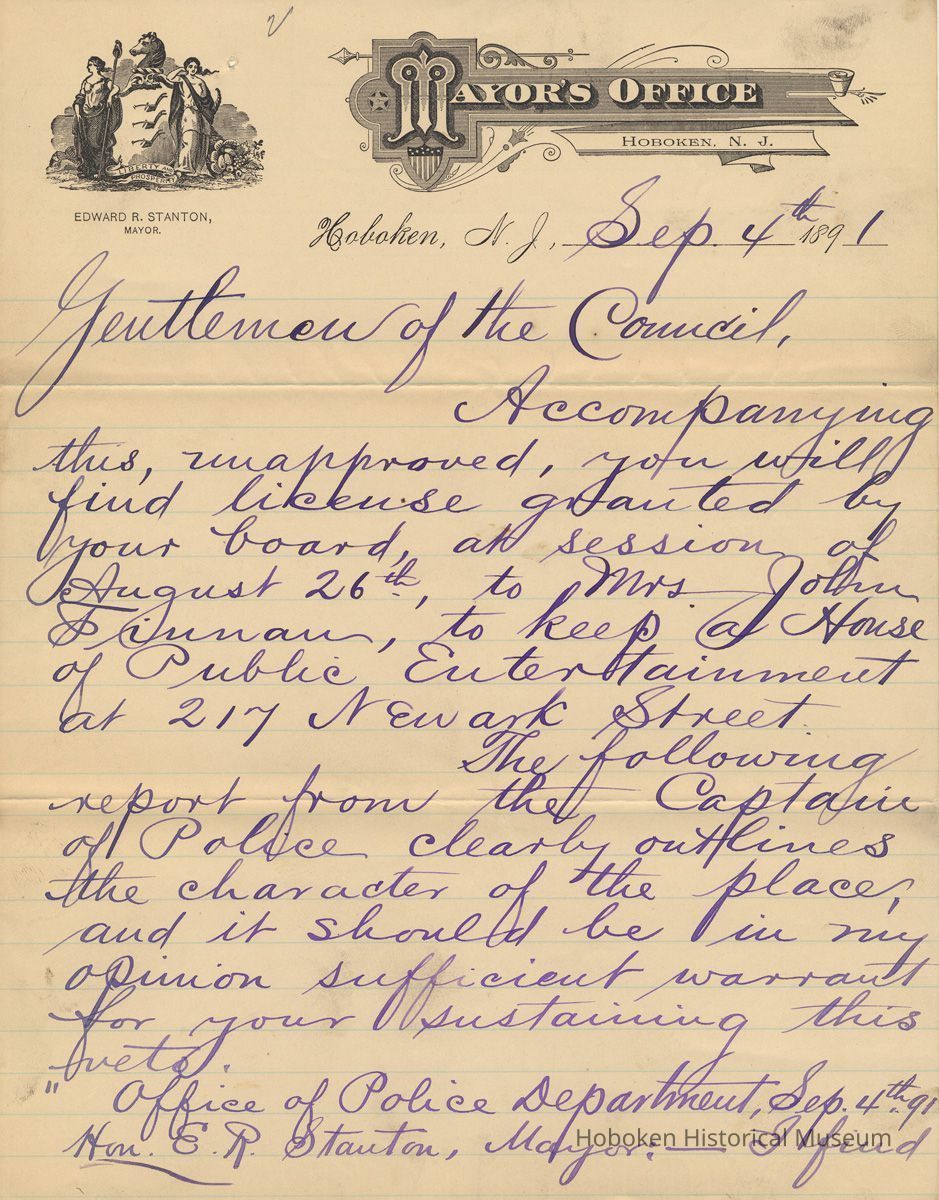 MAYOR'S OFFICE
HOBOKEN, N. J.
LIBERTY AND
PROSPERITY
EDWARD R. STANTON,
MAYOR.
Hoboken, N. J., Sep. 4th 1891
Gentlemen of the Council,
Accompanying
this, unapproved, you will
find license granted by
your board, at session of
August 26th, to Mrs John
Finnan, to keep a House
of Public Entertainment
at 217 Newark Street.
The following
report from the Captain
of Police clearly outlines
the character of the place,
and it should be in my
opinion sufficient warrant
for your sustaining this
veto.
" Office of Police Department, Sep. 4th 91
Hon. E. R. Stanton, Mayor: — I find
Hoboken Historical Museum